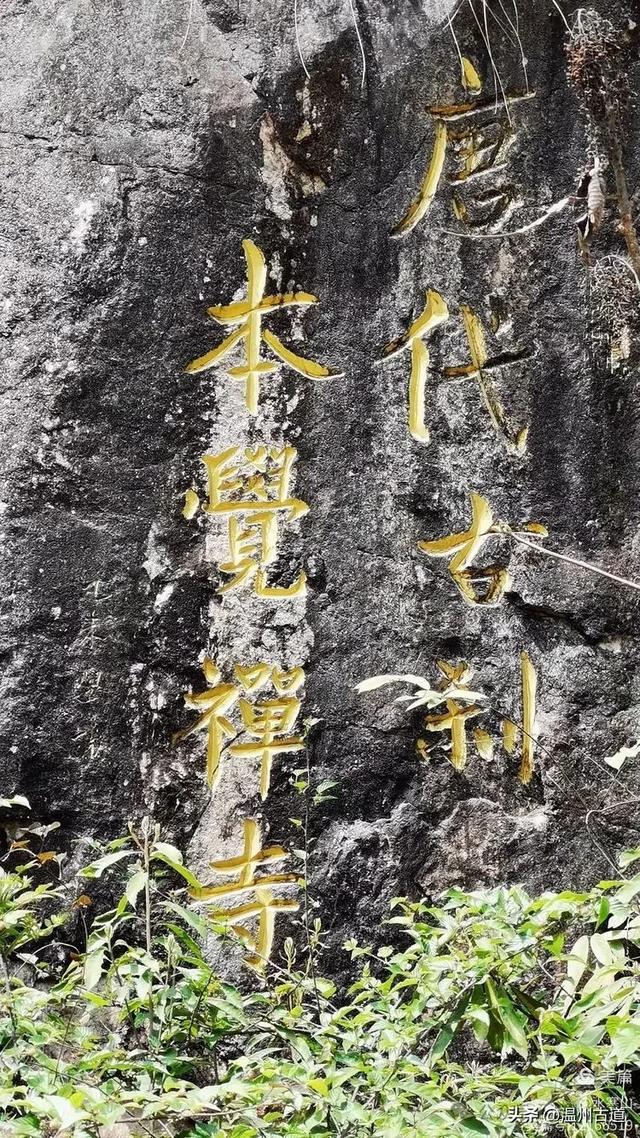 唐代古刹
本覺禪寺
美篇
头条@温州古道